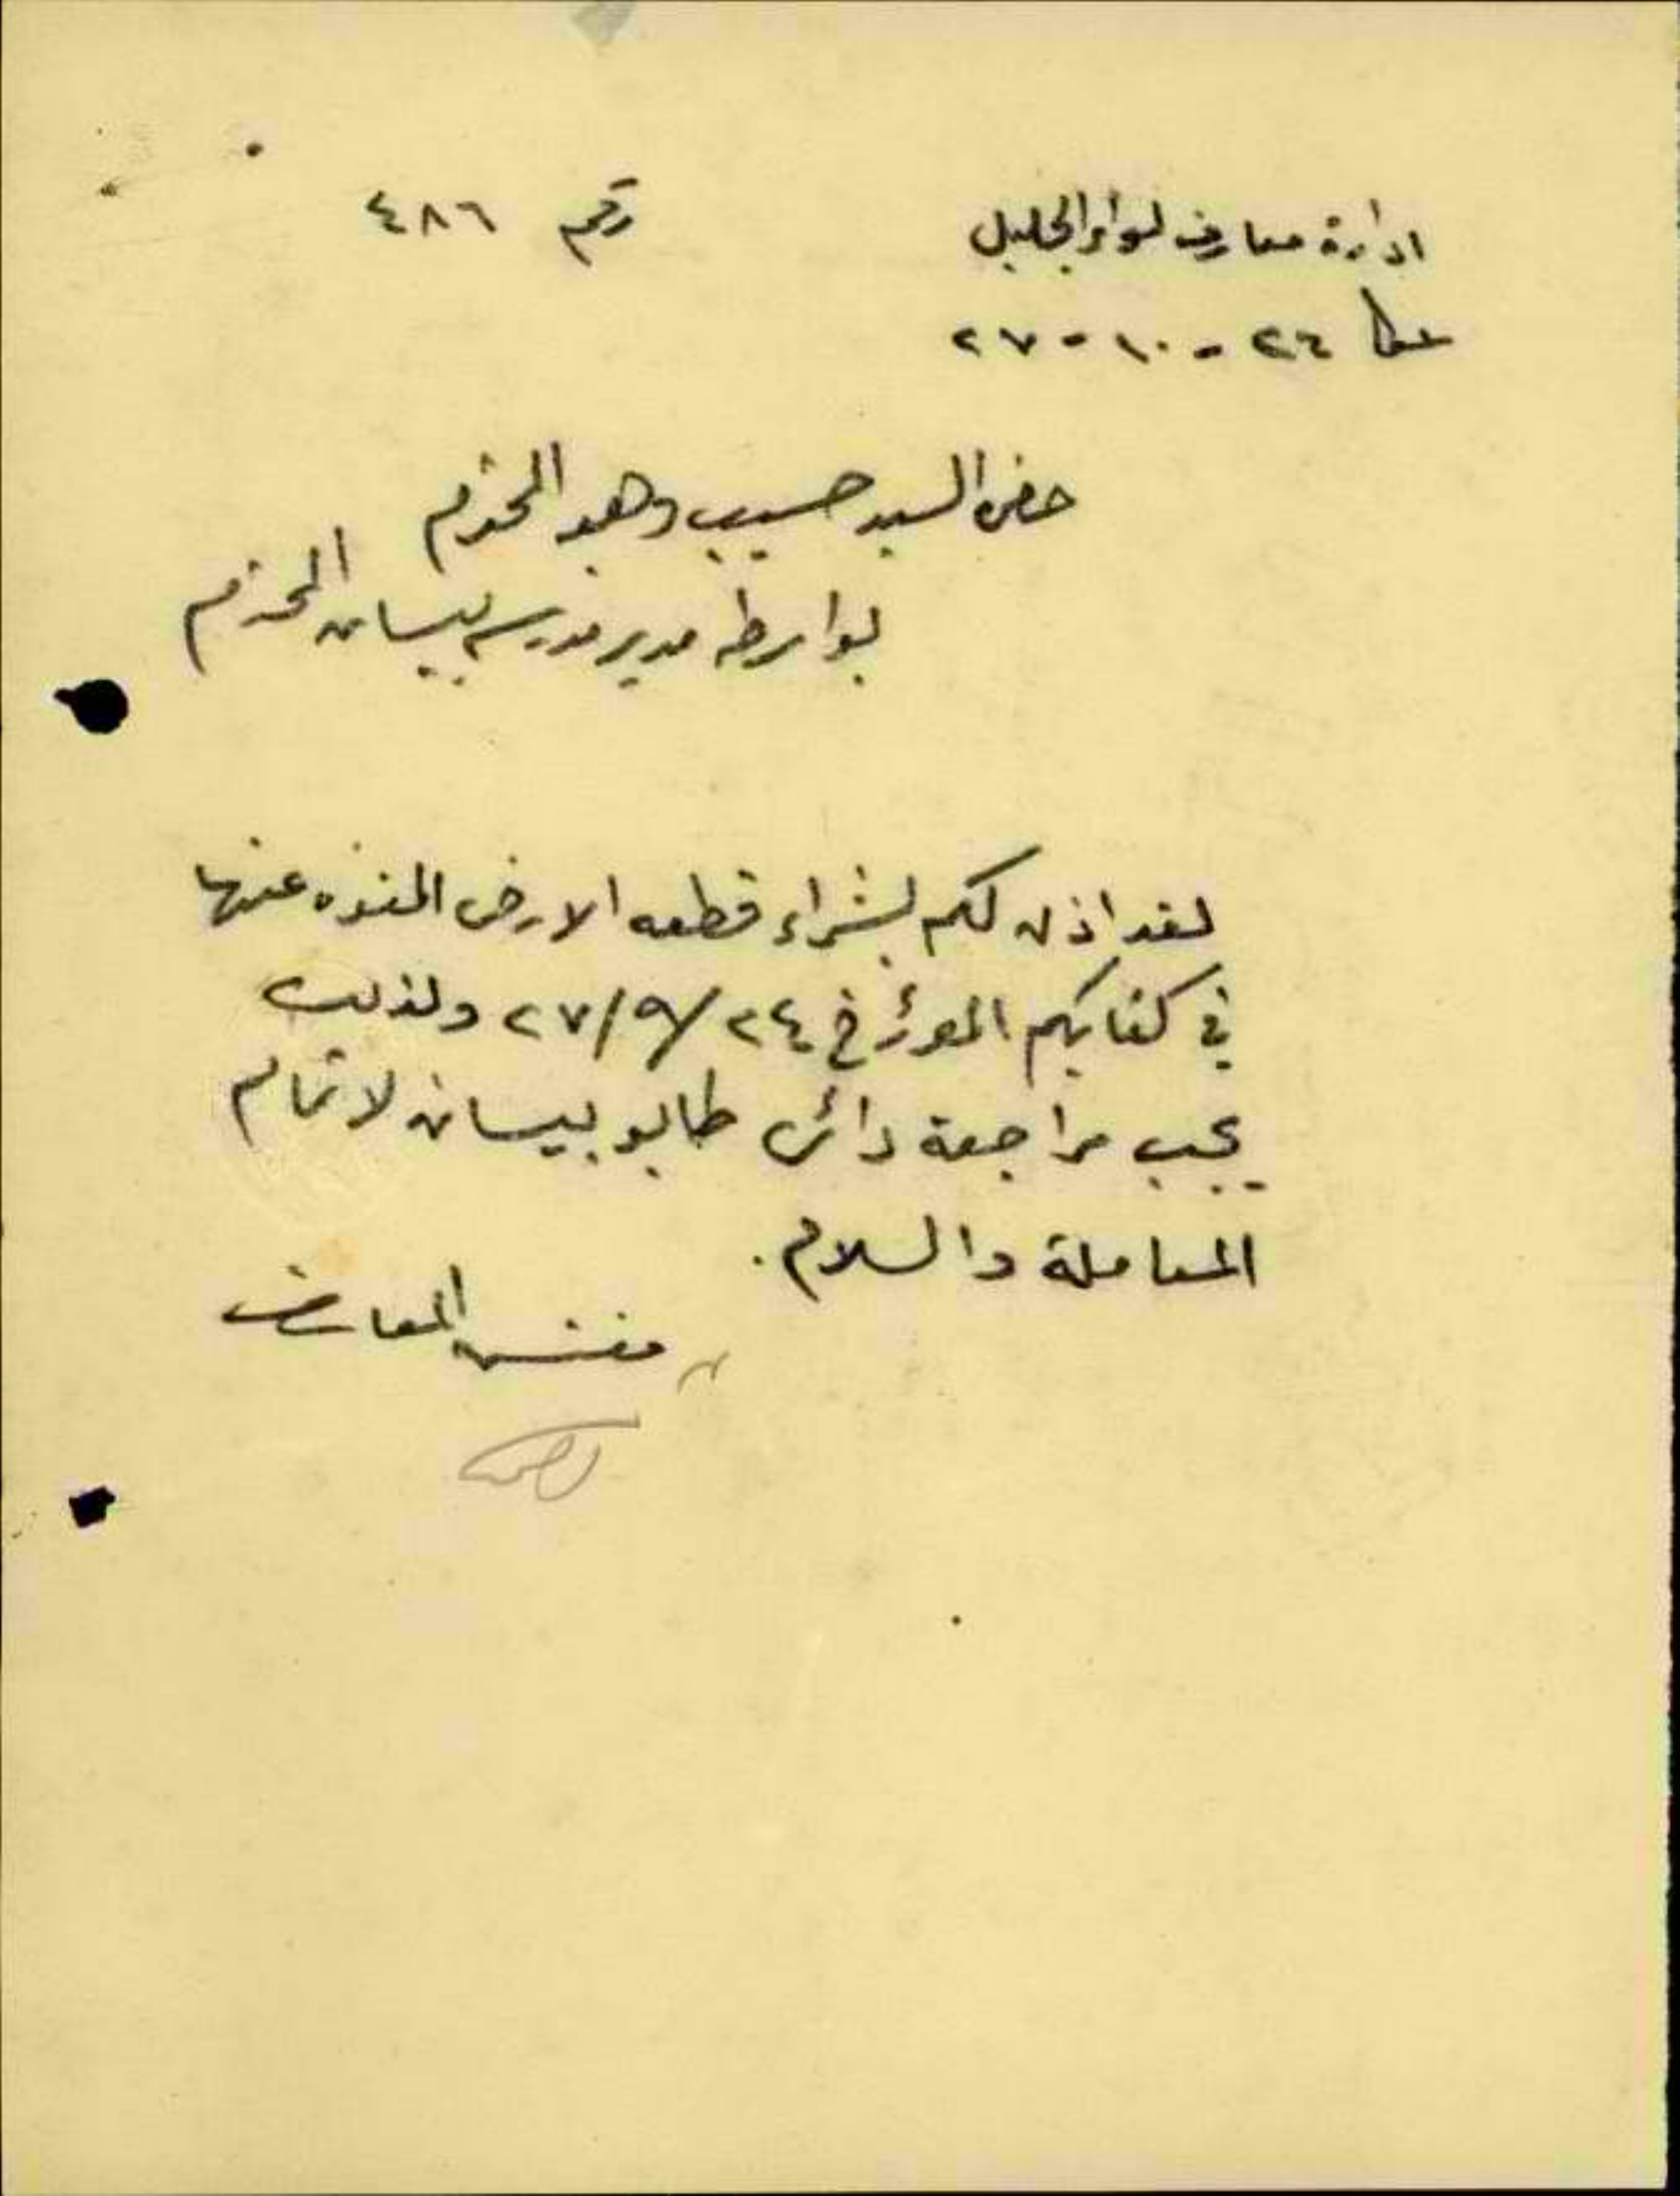 ادارة معارف لواء الجليل
رقم ٤٨٦
عكا ٢٤ - ١٠ - ٢٧
حضرة السيد حسيب وهبه المحترم
بواسطة مدير مدرسة بيسان المحترم
لقد اذن لكم بشراء قطعه الارض المنوه عنها
في كتابكم المؤرخ ٢٤/٩/٢٧ ولذلك
يجب مراجعة دائرة طابو بيسان لاتمام
المعاملة والسلام.
مفتش المعارف